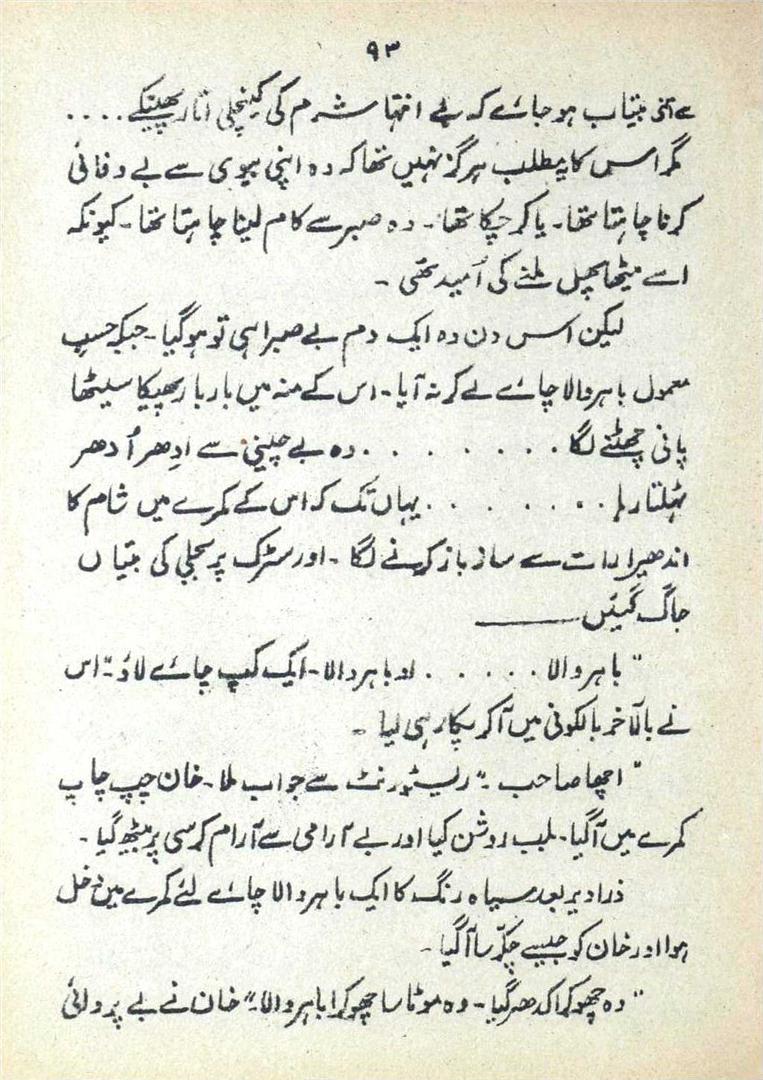 ۹۳
سے اتنی بیتاب ہو جائے کہ بے انتہا شرم کی کینچلی اتار پھینکے . . . .
مگر اس کا یہ مطلب ہرگز نہیں تھا کہ وہ اپنی بیوی سے بے وفائی
کرنا چاہتا تھا۔ یا کر چکا تھا۔ وہ صبر سے کام لینا چاہتا تھا۔ کیونکہ
اسے میٹھا پھل ملنے کی اُمید تھی۔
لیکن اس دن وہ ایک دم بے صبرا ہی تو ہو گیا۔ جبکہ حسبِ
معمول باہر والا چائے لے کر نہ آیا۔ اس کے منہ میں بار بار پھیکا سیٹھا
پانی چھٹنے لگا . . . . . . . . وہ بے چینی سے اِدھر اُدھر
ٹہلتا رہا . . . . . . . . یہاں تک کہ اس کے کمرے میں شام کا
اندھیرا رات سے ساز باز کرنے لگا۔ اور سڑک پر بجلی کی بتیاں
جاگ گئیں ____
"باہر والا . . . . . او باہر والا۔ ایک کپ چائے لاؤ۔" اس
نے بالآخر بالکونی میں آ کر پکار ہی لیا۔
"اچھا صاحب۔" ریسٹورنٹ سے جواب ملا۔ خان چپ چاپ
کمرے میں آ گیا۔ بلب روشن کیا اور بے آرامی سے آرام کرسی پر بیٹھ گیا۔
ذرا دیر بعد سیاہ رنگ کا ایک باہر والا چائے لئے کمرے میں داخل
ہوا اور خان کو جیسے چکّر سا آ گیا۔
"وہ چھوکرا کدھر گیا۔ وہ موٹا سا چھوکرا باہر والا۔" خان نے بے پروائی